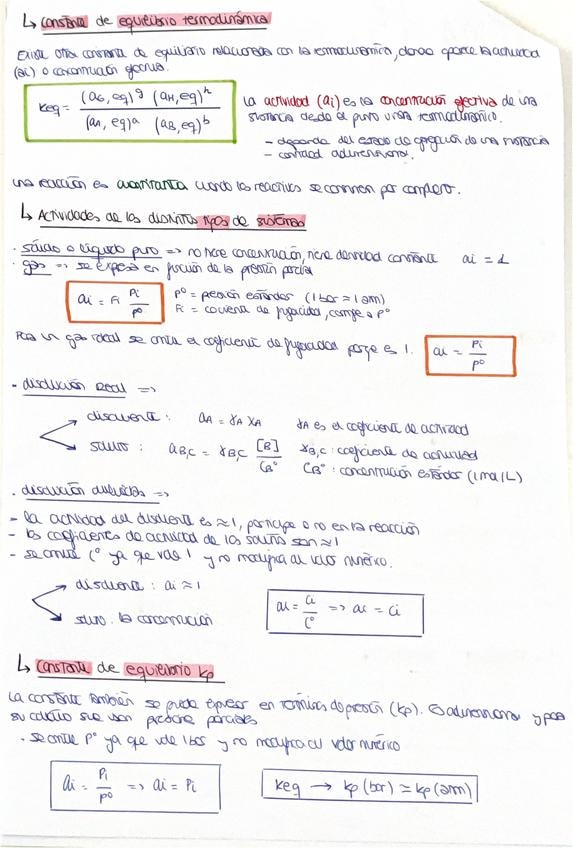 ↳ Constante de equilibrio termodinámica
Existe otra constante de equilibrio relacionada con la termodinámica, donde aparece la actividad
(ai) o concentración efectiva.
Keq = (aG,eq)^g (aH,eq)^h / (aA,eq)^a (aB,eq)^b
La actividad (ai) es la concentración efectiva de una
sustancia desde el punto vista termodinámico.
- depende del estado de agregación de una sustancia
- cantidad adimensional.
una reacción es cuantitativa cuando los reactivos se consumen por completo.
↳ Actividades de los distintos tipos de sistemas
· sólido o líquido puro => no tiene concentración, tiene densidad constante ai = 1
· gas => se expresa en función de la presión parcial
ai = Fi Pi/P°
P° = presión estándar (1 bar ≈ 1 atm)
Fi = coeficiente de fugacidad, corrige a P°
Para un gas ideal se omite el coeficiente de fugacidad porque es 1.
ai = Pi/P°
· disolución real =>
disolvente : aA = γA XA γA es el coeficiente de actividad
soluto : aB,C = γB,C [B]/CB° γB,C : coeficiente de actividad
CB° : concentración estándar (1 mol/L)
· disolución diluida =>
- la actividad del disolvente es ≈ 1, participe o no en la reacción
- los coeficientes de actividad de los solutos son ≈ 1
- se omite C° ya que vale 1 y no modifica al valor numérico.
disolvente : ai ≈ 1
soluto : la concentración
ai = Ci/C° => ai = Ci
↳ Constante de equilibrio Kp
La constante también se puede expresar en términos de presión (Kp). Es adimensional y para
su cálculo se usan presiones parciales
· se omite P° ya que vale 1 bar y no modifica al valor numérico
ai = Pi/P° => ai = Pi
Keq → Kp (bar) ≈ Kp (atm)